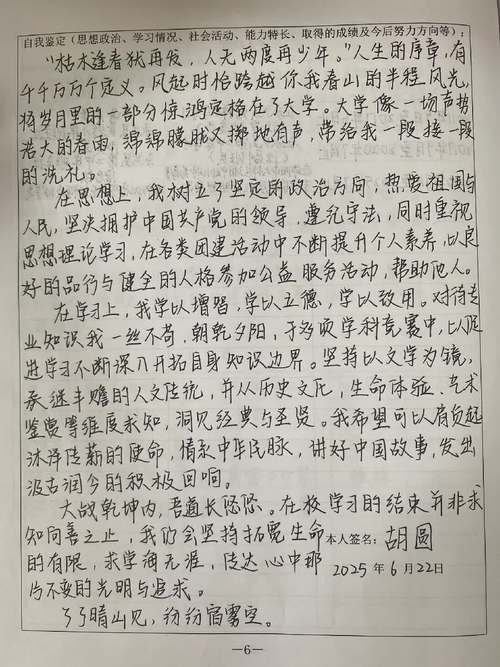 自我鉴定（思想政治、学习情况、社会活动、能力特长、取得的成绩及今后努力方向等）：
“枯木逢春犹再发，人无两度再少年。”人生的序章，有
千千万万个定义。风起时恰跨越你我看山的半程风光，
将岁月里的一部分惊鸿定格在了大学。大学像一场声势
浩大的春雨，绵绵朦胧又掷地有声，带给我一段接一段
的洗礼。
在思想上，我树立了坚定的政治方向，热爱祖国与
人民，坚决拥护中国共产党的领导，遵纪守法，同时重视
思想理论学习，在各类团建活动中不断提升个人素养，以良
好的品行与健全的人格参加公益服务活动，帮助他人。
在学习上，我学以增智，学以立德，学以致用。对待专
业知识我一丝不苟，朝乾夕阳，于多项学科竞赛中，以促
进学习不断深入开拓自身知识边界。坚持以文学为镜，
承继丰赡的人文传统，并从历史文化，生命体验，艺术
鉴赏等维度求知，洞见经典与圣贤。我希望可以肩负起
沐泽传薪的使命，情系中华民脉，讲好中国故事，发出
汲古润今的积极回响。
大哉乾坤内，吾道长悠悠。在校学习的结束并非求
知向善之止，我仍会坚持拓宽生命
的有限，求学海无涯，传达心中那
片不变的光明与追求。
了了晴山见，纷纷宿雾空。
本人签名：胡圆
2025年6月22日
—6—